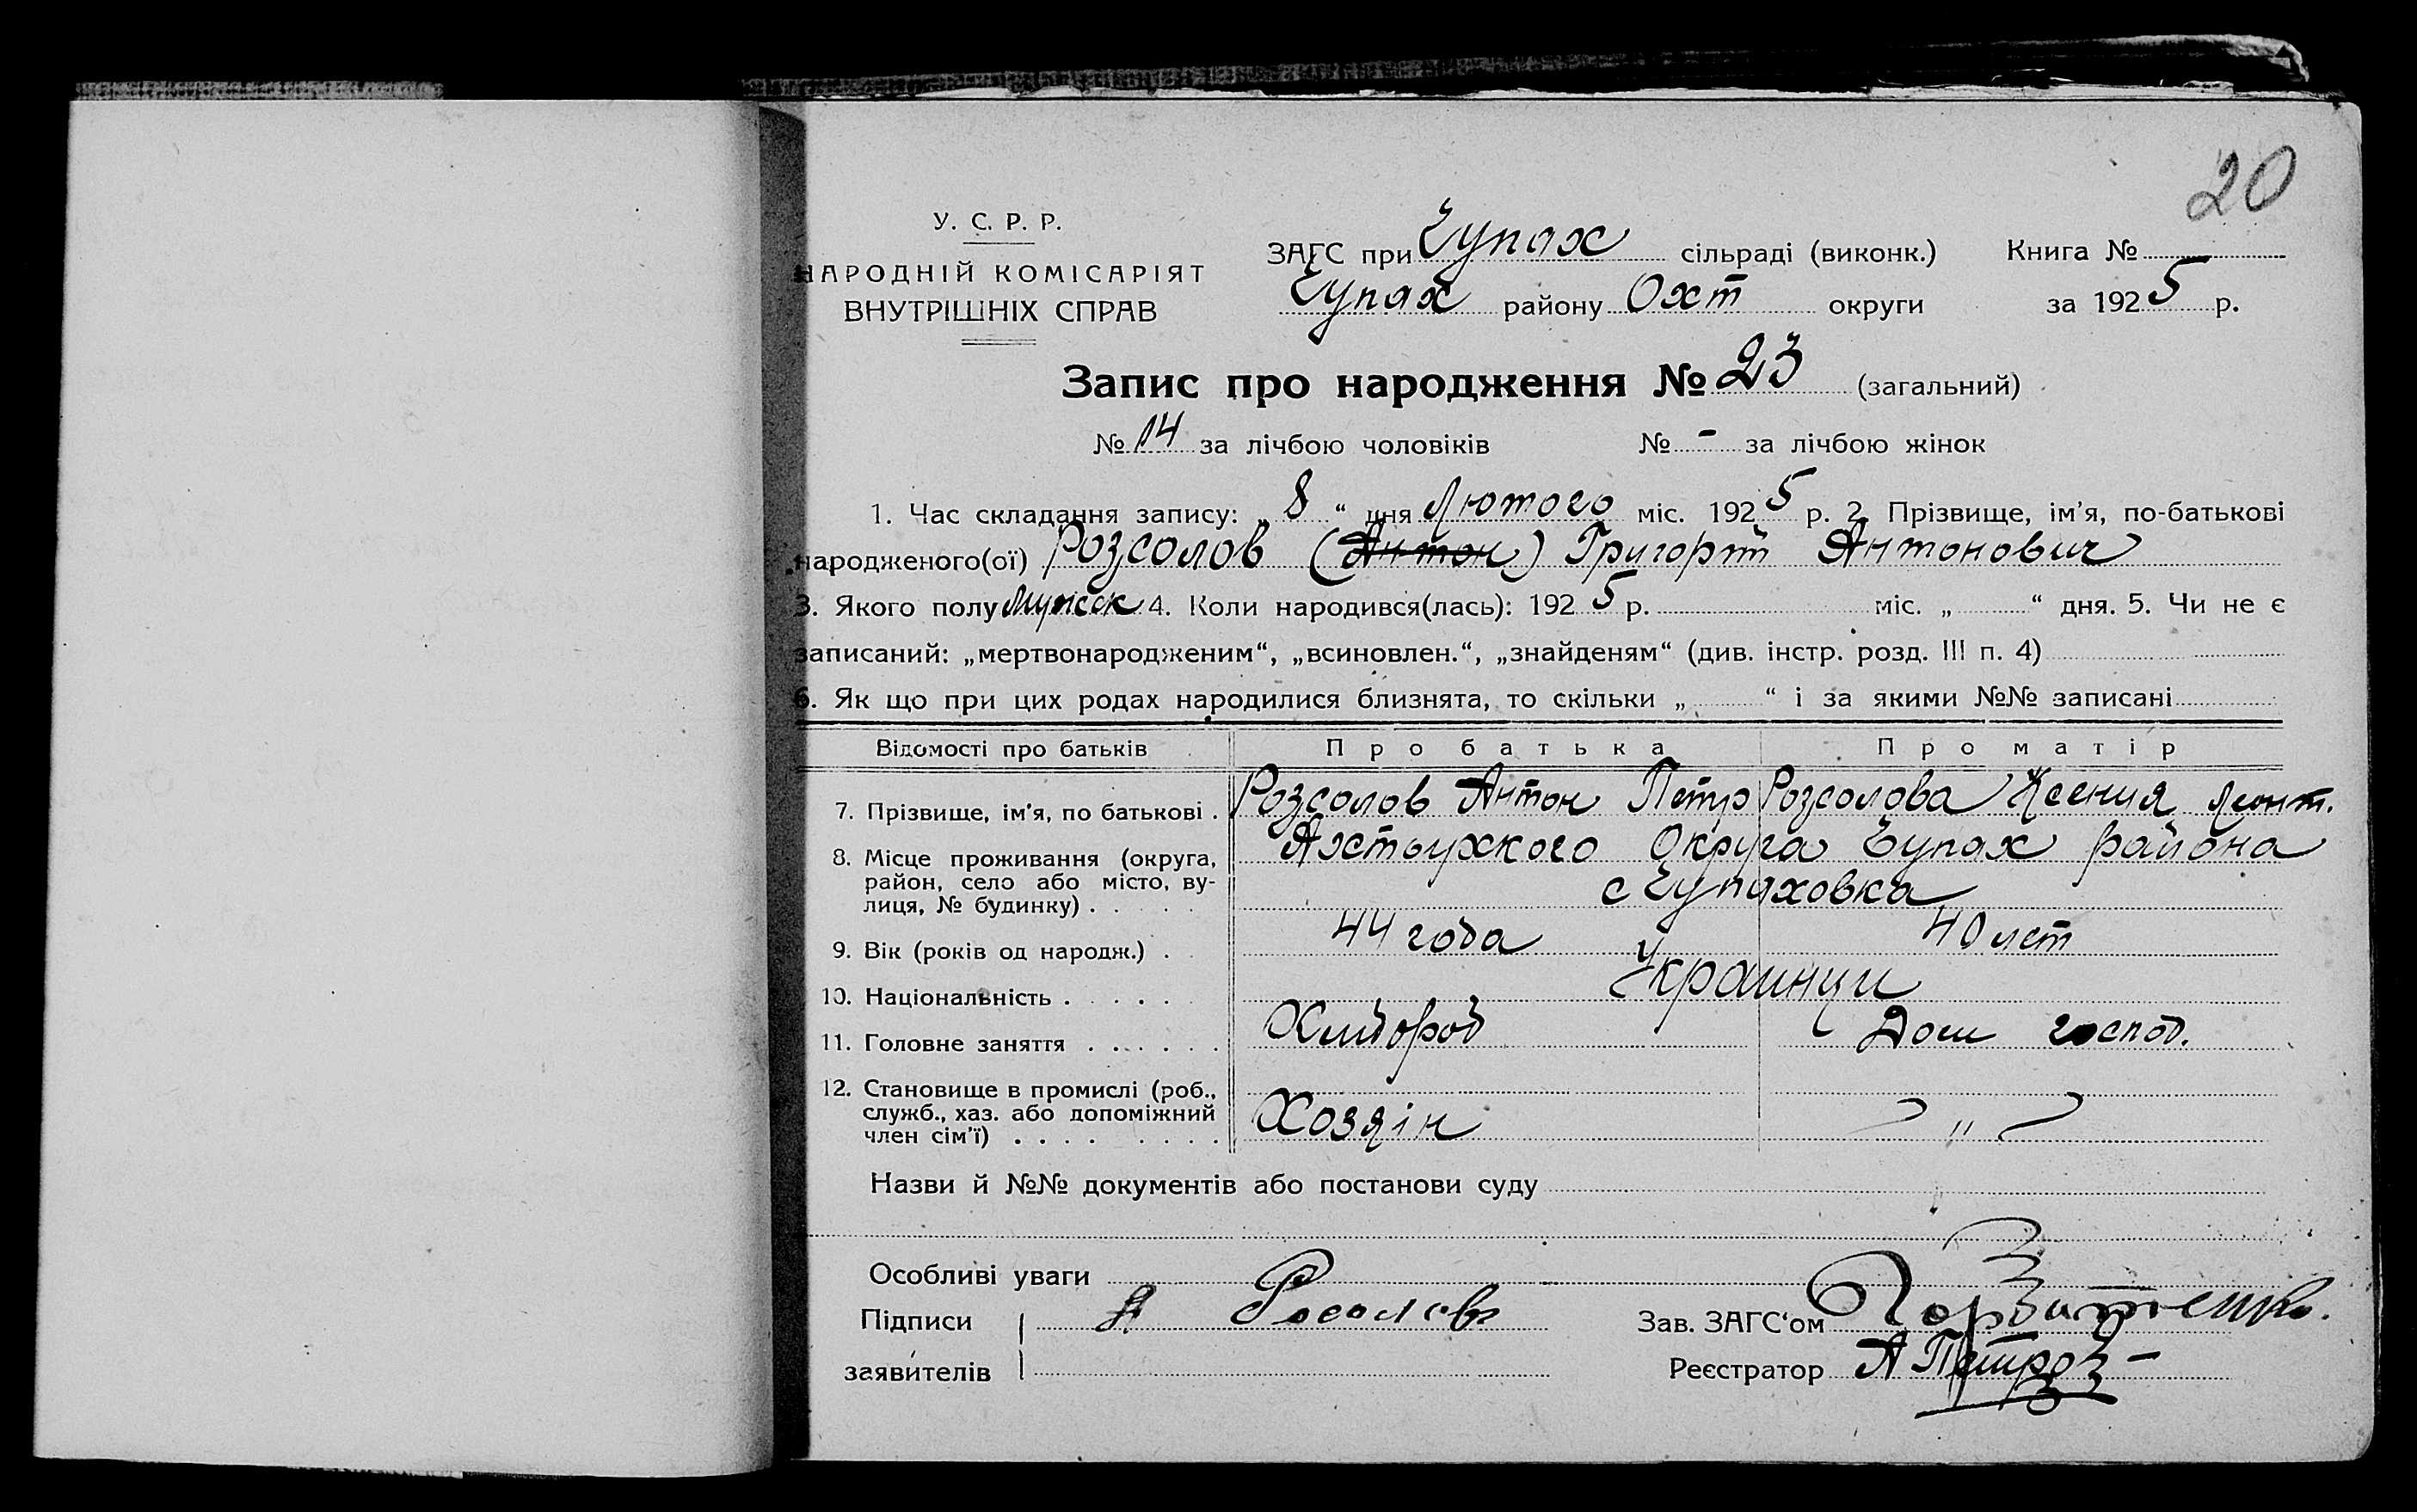 20
У. С. Р. Р.
НАРОДНІЙ КОМІСАРІЯТ
ВНУТРІШНІХ СПРАВ
ЗАГС при Чупах сільраді (виконк.) Книга №
Чупах району Охт округи за 1925 р.
Запис про народження № 23 (загальний)
№ 14 за лічбою чоловіків № - за лічбою жінок
1. Час складання запису: „ 8 “ дня Лютого міс. 1925 р. 2. Прізвище, ім'я, по-батькові
народженого(ої) Розсолов (Антон) Григорій Антонович
3. Якого полу Мужск 4. Коли народився(лась): 1925 р. міс. „ “ дня. 5. Чи не є
записаний: „мертвонародженим“, „всиновлен.“, „знайденям“ (див. інстр. розд. III п. 4)
6. Як що при цих родах народилися близнята, то скільки „ “ і за якими №№ записані
Відомості про батьків Про батька Про матір
7. Прізвище, ім'я, по батькові . Розсолов Антон Петр Розсолова Ксения Леонт.
8. Місце проживання (округа, Ахтырхкого Округа Чупах района
район, село або місто, ву-
лиця, № будинку) . . с Чупаховка
9. Вік (років од народж.) . 44 года 40 лет
10. Національність . . . . Украинци
11. Головне заняття . . . . . . Хлибороб Дом господ.
12. Становище в промислі (роб.,
служб., хаз. або допоміжний
член сім'ї) . . . . Хозяін "
Назви й №№ документів або постанови суду
Особливі уваги
Підписи Зав. ЗАГС'ом
заявителів Реєстратор А Петров